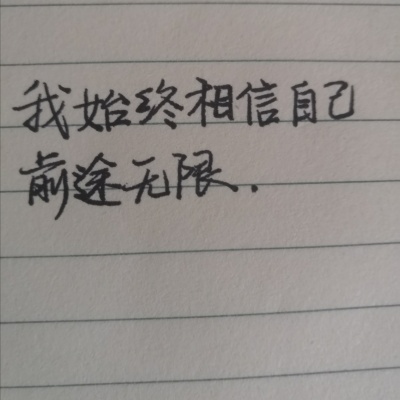 我始终相信自己
前途无限.